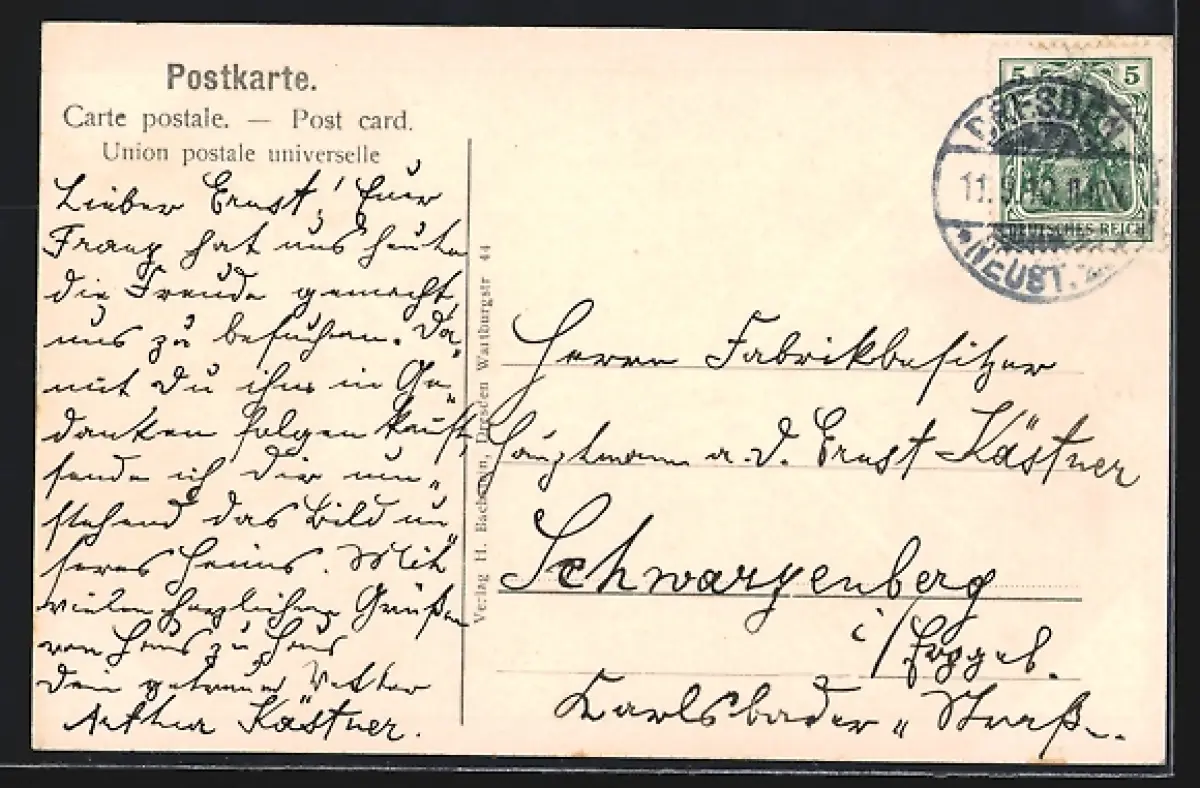 Postkarte.
Carte postale. — Post card.
Union postale universelle
Lieber Ernst! Euer
Franz hat uns heute
die Freude gemacht,
uns zu besuchen. Da„
mit Du ihm in Ge„
danken folgen kannst,
sende ich Dir um„
stehend das Bild un
seres Heims. Mit
vielen herzlichen Grüßen
von Haus zu Haus
Dein getreuer Vetter
Arthur Kästner.
Verlag H. Dresden Wartburgstr 44
5 5
DEUTSCHES REICH
DRESDEN
11.9.10. 11-12V
*NEUST.
Herrn Fabrikbesitzer
Hauptmann a. D. Ernst Kästner
Schwarzenberg
i/Erzgeb.
Karlsbader „ Straße.